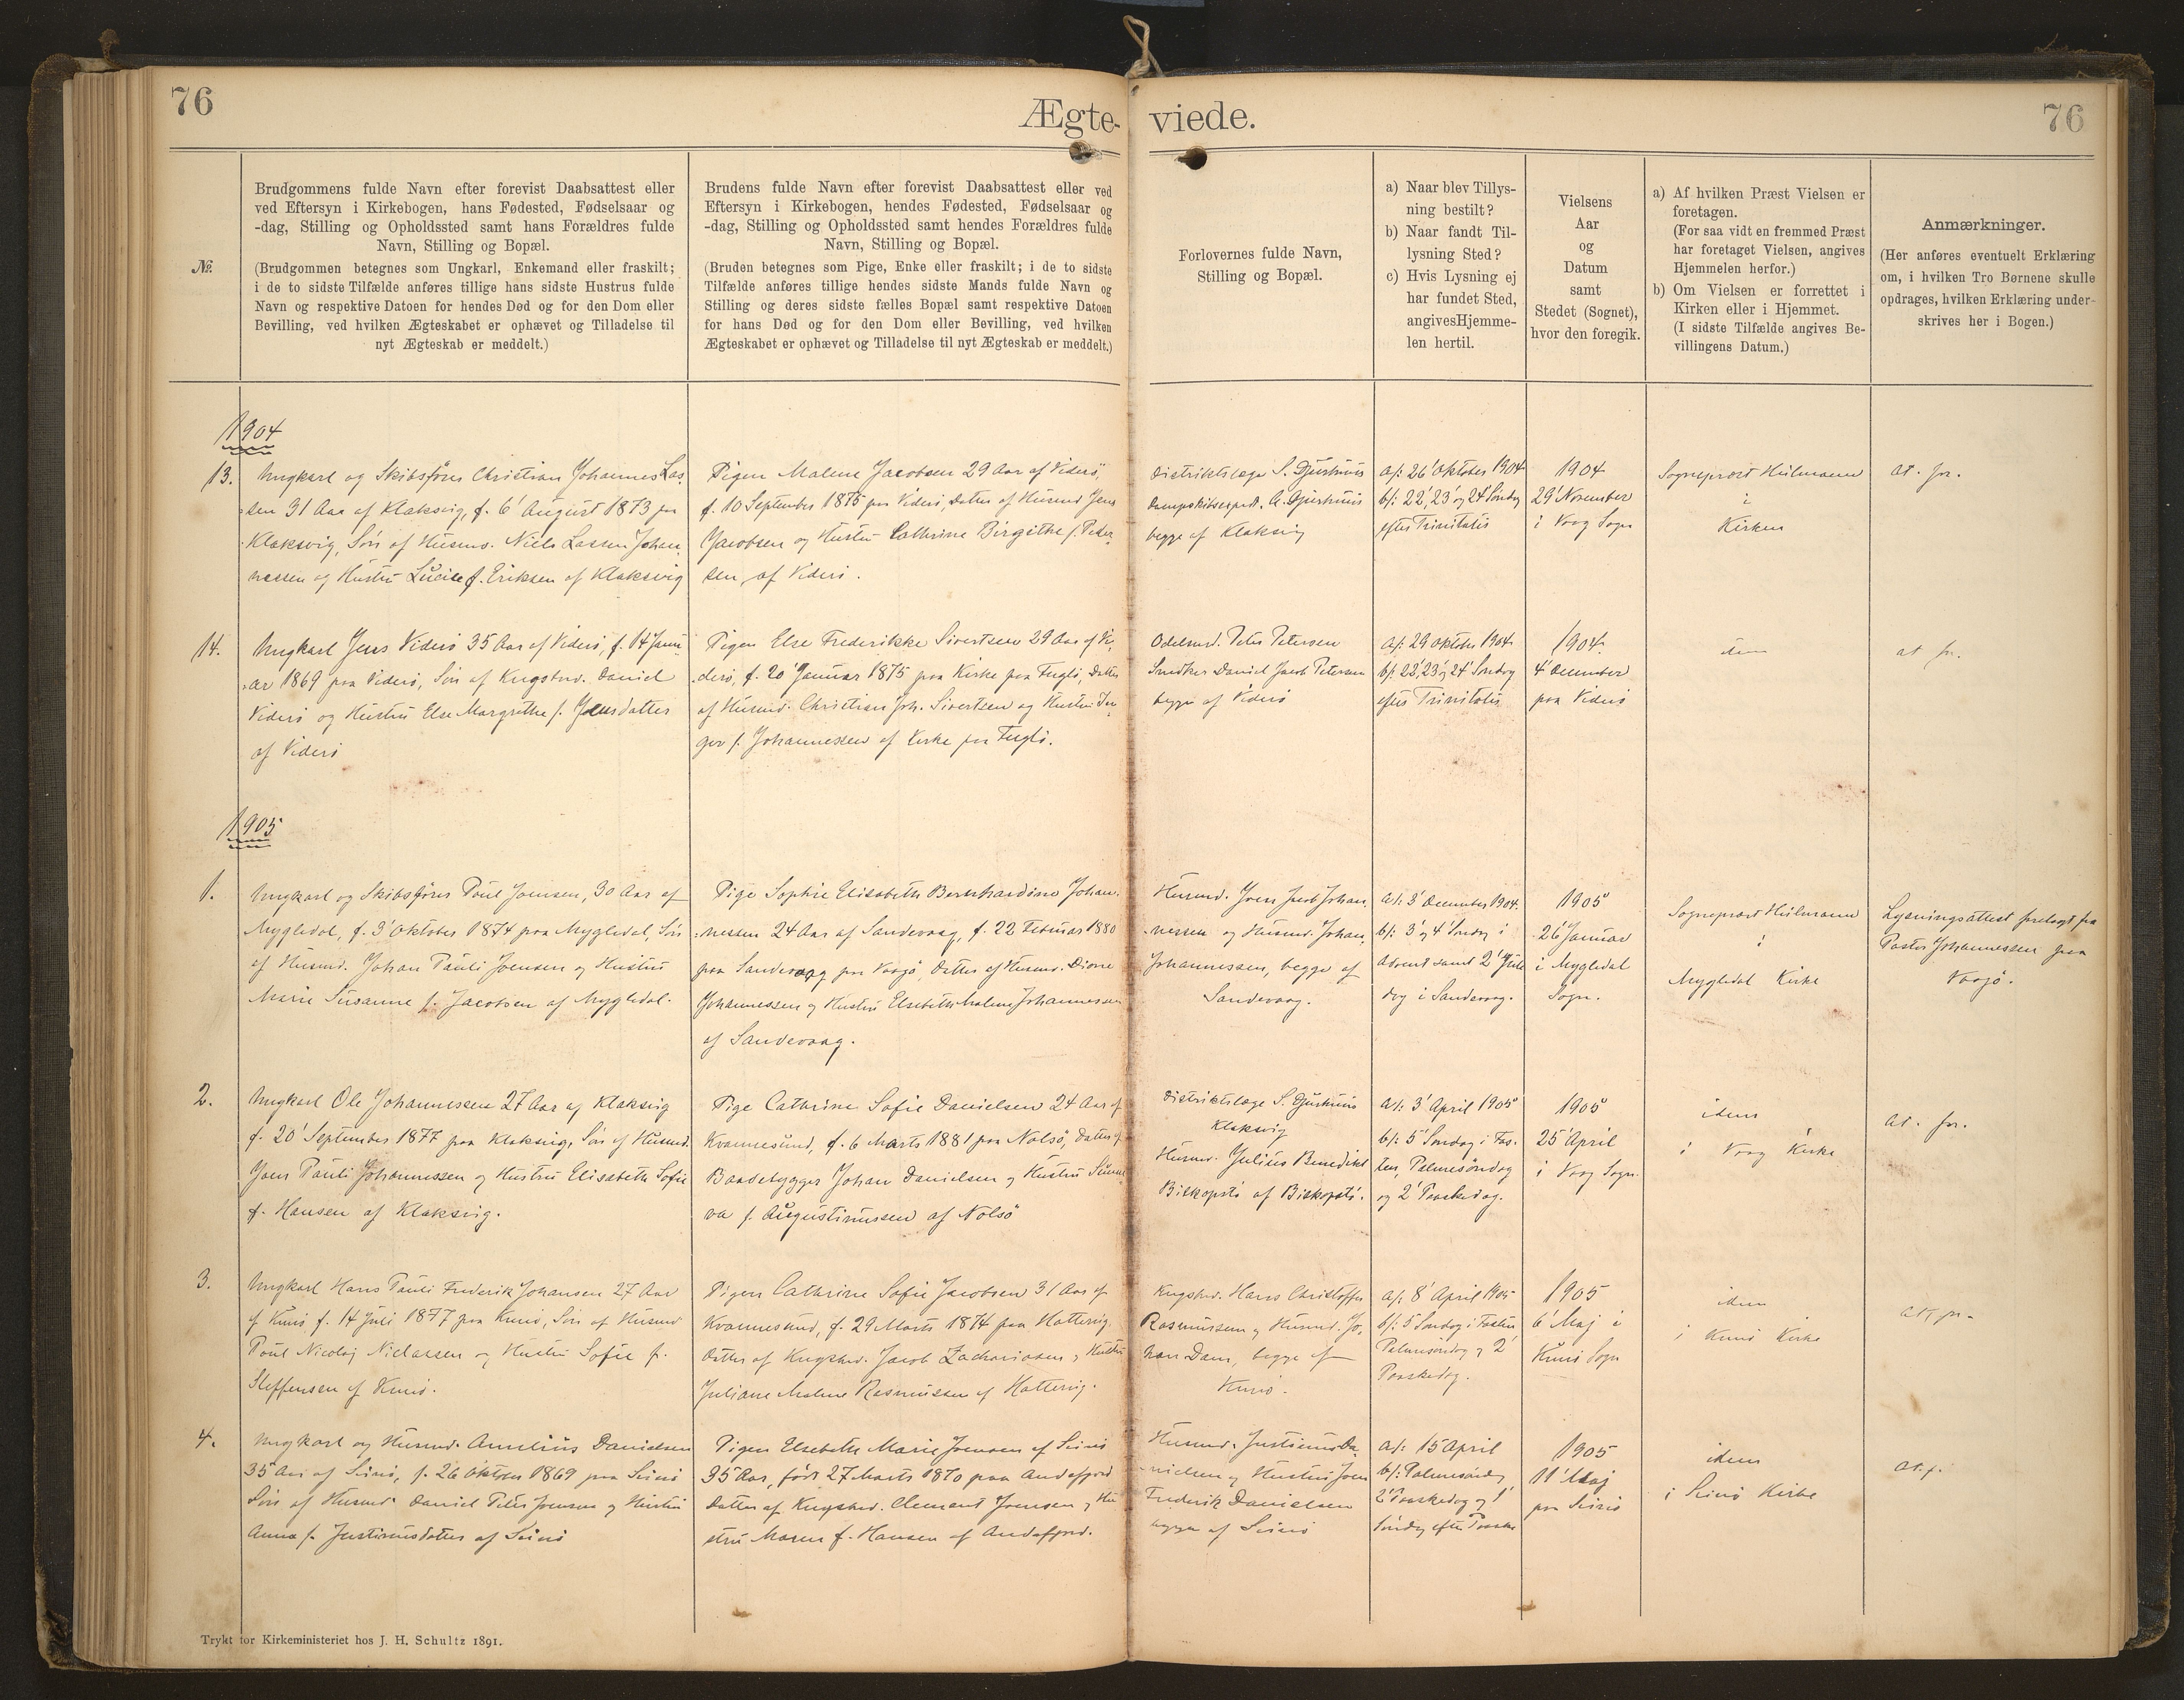 76
Ægte-
viede.
76
№.
Brudgommens fulde Navn efter forevist Daabsattest eller
ved Eftersyn i Kirkebogen, hans Fødested, Fødselsaar og
-dag, Stilling og Opholdssted samt hans Forældres fulde
Navn, Stilling og Bopæl.
(Brudgommen betegnes som Ungkarl, Enkemand eller fraskilt;
i de to sidste Tilfælde anføres tillige hans sidste Hustrus fulde
Navn og respektive Datoen for hendes Død og for den Dom eller
Bevilling, ved hvilken Ægteskabet er ophævet og Tilladelse til
nyt Ægteskab er meddelt.)
Brudens fulde Navn efter forevist Daabsattest eller ved
Eftersyn i Kirkebogen, hendes Fødested, Fødselsaar og
-dag, Stilling og Opholdssted samt hendes Forældres fulde
Navn, Stilling og Bopæl.
(Bruden betegnes som Pige, Enke eller fraskilt; i de to sidste
Tilfælde anføres tillige hendes sidste Mands fulde Navn og
Stilling og deres sidste fælles Bopæl samt respektive Datoen
for hans Død og for den Dom eller Bevilling, ved hvilken
Ægteskabet er ophævet og Tilladelse til nyt Ægteskab er meddelt.)
Forlovernes fulde Navn,
Stilling og Bopæl.
a) Naar blev Tillys-
ning bestilt?
b) Naar fandt Til-
lysning Sted?
c) Hvis Lysning ej
har fundet Sted,
angivesHjemme-
len hertil.
Vielsens
Aar
og
Datum
samt
Stedet (Sognet),
hvor den foregik.
a) Af hvilken Præst Vielsen er
foretagen.
(For saa vidt en fremmed Præst
har foretaget Vielsen, angives
Hjemmelen herfor.)
b) Om Vielsen er forrettet i
Kirken eller i Hjemmet.
(I sidste Tilfælde angives Be-
villingens Datum.)
Anmærkninger.
(Her anføres eventuelt Erklæring
om, i hvilken Tro Børnene skulle
opdrages, hvilken Erklæring under-
skrives her i Bogen.)
1904
13.
Ungkarl og Skibsfører Christian Johannes Las-
sen 31 Aar af Klaksvig, f. 6' August 1873 paa
Klaksvig, Søn af Husmd. Niels Lassen Johan-
nessen og Hustru Lucie f. Eriksen af Klaksvig
Pigen Malene Jacobsen 29 Aar af Viderø,
f. 10 September 1875 paa Viderø, Datter af Husmd Jens
Jacobsen og Hustru Cathrine Birgithe f. Peter-
sen, af Viderø.
Distriktslæge S. Djurhuus
Dampskibsexpedt. A. Djurhuus
begge af Klaksvig
a/: 26' Oktober 1904
b/: 22', 23' og 24' Søndag
efter Trinitatis
1904
29' November
i Vaag Sogn
Sogneprest Heilmann
i
Kirken
at. fr.
14.
Ungkarl Jens Viderø 35 Aar af Viderø, f. 14 Janu-
ar 1869 paa Viderø, Søn af Kngsbmd. Daniel
Viderø og Hustru Else Margrethe f. Joensdatter
af Viderø
Pigen Else Frederikke Sivertsen 29 Aar af Vi-
derø, f. 20' Januar 1875 paa Kirke paa Fuglø, Datter
af Husmd. Christian Joh. Sivertsen og Hustru In-
ger f. Johannessen af Kirke paa Fuglø.
Odelsmd. Peter Petersen
Snedker Daniel Jacob Petersen
begge af Viderø
a/: 29 Oktober 1904
b/: 22', 23' og 24' Søndag
efter Trinitatis
1904
4' December
paa Viderø
idem
at fr.
1905
1.
Ungkarl og Skibsfører Poul Joensen, 30 Aar af
Mygledal, f. 3' Oktober 1874 paa Mygledal, Søn
af Husmd. Johan Pauli Joensen og Hustru
Marie Susanne f. Jacobsen af Mygledal.
Pige Sophie Elisabeth Bernhardine Johan-
nessen 24 Aar af Sandevaag, f. 22 Februar 1880
paa Sandevaag paa Vaagø, Datter af Husmd. Dione
Johannessen og Hustru Elsebeth Malene Johannessen
af Sandevaag.
Husmd. Joen Jacob Johan-
nessen og Husmd. Johan
Johannessen, begge af
Sandevaag.
a/: 3' December 1904
b/: 3' og 4' Søndag i
Advent samt 2' Jule
dag i Sandevaag.
1905
26' Januar
i Mygledal
Sogn.
Sogneprest Heilmann
i
Mygledal Kirke
Lysningsattest forelagt fra
Pastor Johannessen paa
Vaagø.
2.
Ungkarl Ole Johannessen 27 Aar af Klaksvig
f. 20' September 1877 paa Klaksvig, Søn af Husmd.
Joen Pauli Johannessen og Hustru Elisabeth Sofie
f. Hansen af Klaksvig.
Pige Cathrine Sofie Danielsen 24 Aar af
Kvannesund, f. 6 Marts 1881 paa Nolsø, Datter af
Baadebygger Johan Danielsen og Hustru Sunne-
va f. Augustinussen af Nolsø
Distriktslæge S. Djurhuus
Klaksvig
Husmd. Julius Benedikt
Biskopstø af Biskopstø.
a/: 3' April 1905
b/: 5' Søndag i Fas-
ten, Palmesøndag
og 2' Paaskedag.
1905
25' April
i Vaag Sogn.
idem
i Vaag Kirke
at. fr.
3.
Ungkarl Hans Pauli Frederik Johansen 27 Aar
af Kunø f. 14 Juli 1877 paa Kunø, Søn af Husmd
Poul Nicolaj Niclassen og Hustru Sofie f.
Steffensen af Kunø.
Pigen Cathrine Sofie Jacobsen 31 Aar af
Kvannesund, f. 29 Marts 1874 paa Hattervig.
Datter af Kngsbmd. Jacob Zachariasen og Hustru
Juliane Malene Rasmussen af Hattervig.
Kngsbmd. Hans Christoffer
Rasmussen og Husmd. Jo-
han Dam, begge af
Kunø.
a/: 8' April 1905
b/: 5 Søndag i Fasten
Palmesøndag og 2'
Paaskedag.
1905
6' Maj i
Kunø Sogn
idem
i Kunø Kirke
4.
Ungkarl og Husmd. Danielsen
35 Aar af Svinø, f. 26 Oktober 1869 paa Svinø
Søn af Husmd. Daniel Peter Joensen og Hustru
Anna f. Justinusdatter af Svinø
Pigen Elsebeth Marie Joensen af Svinø
35 Aar, født 27 Marts 1870 paa Andefjord
Datter af Kngsbmd. Clement Joensen og Hu-
stru Maren f. Hansen af Andefjord.
Husmd. Justinus Da-
nielsen og Joen
Frederik Danielsen
begge af Svinø
a/: 15 April
b/: Palmesøndag
2' Paaskedag og 1'
Søndag efter Paaske
1905
11' Maj
paa Svinø
idem
i Svinø Kirke
at. f.
Trykt for Kirkeministeriet hos J. H. Schultz 1891.